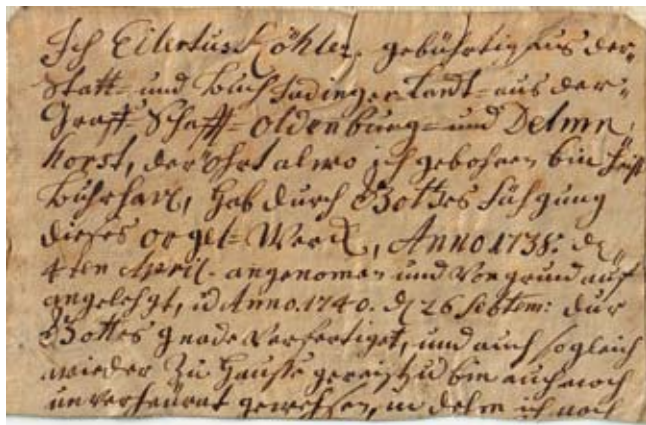 Ich Eilertus Köhler, gebührtig aus der
Statt- und Buchjadinger Landt- aus der
Graff-Schafft- Oldenburg- und Delmn
horst, der Ohrt alwo ich gebohren bin heist
Buhrhave, hab durch Gottes fühgung
dieses orgel-Werck, Anno 1738. d
4ten April. angenomen und von grund auf
angelehgt, ud Anno. 1740. d 26 Septem: dur
Gottes gnade Verfertiget, und auch sogleich
wieder Zu Hausse gereist ud bin auch noch
unverheurat gewehsen, in dehm ich noch